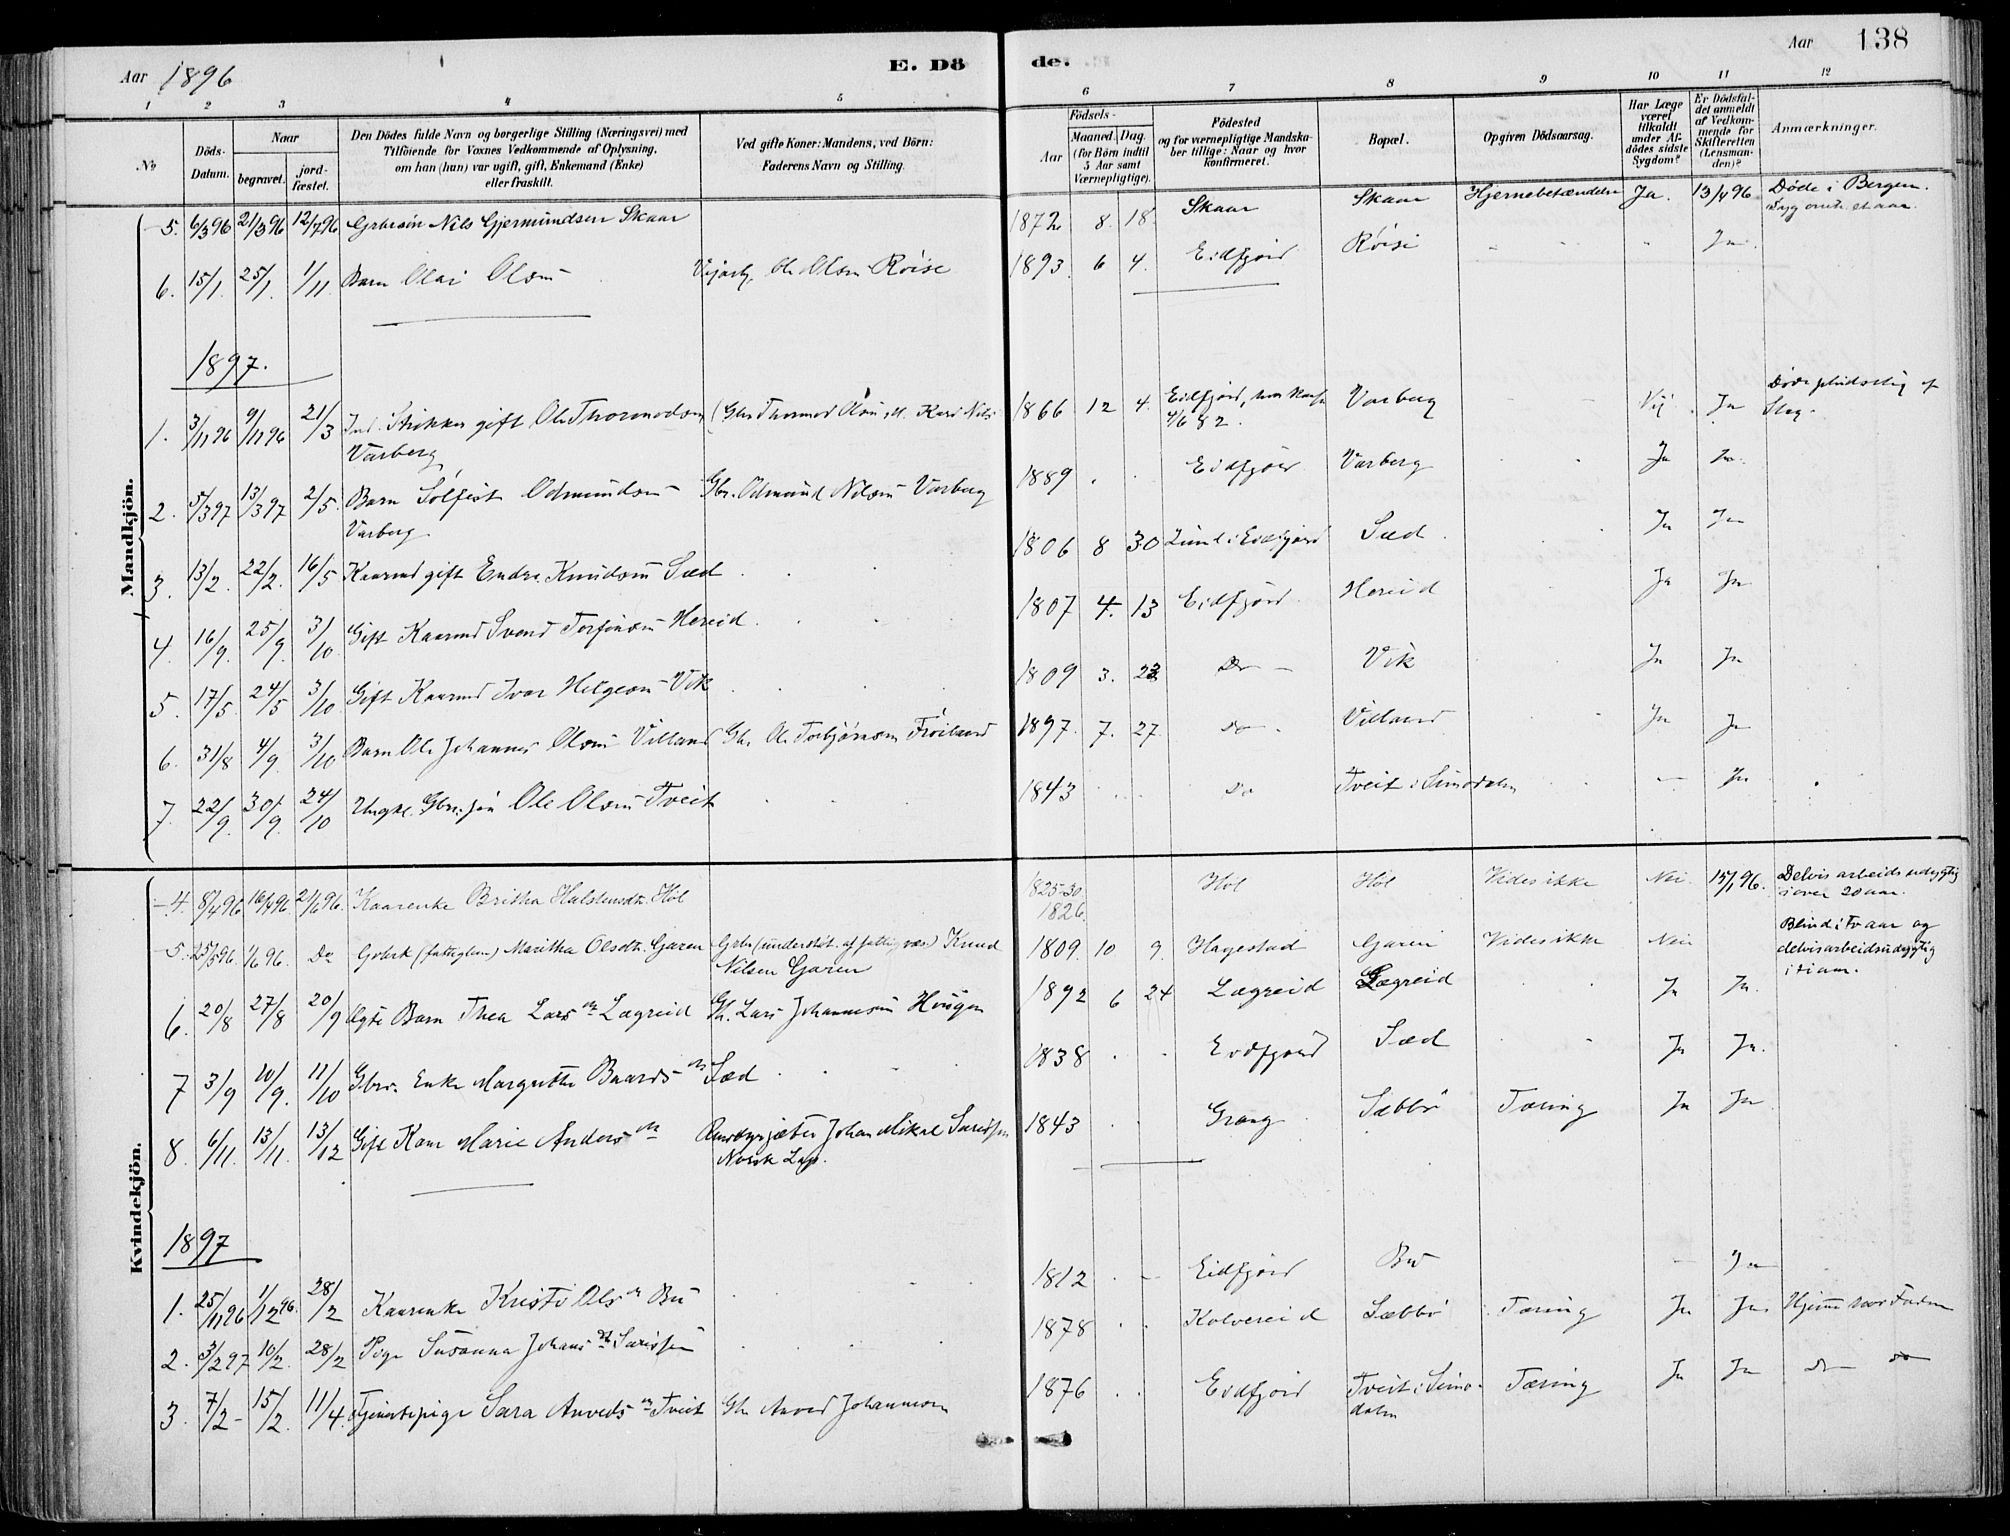 Aar 1896 E. Dö de. Aar 138
1 2 3 4 5 6 7 8 9 10 11 12
No Döds-Datum. Naar begravet. jord-fæstet. Den Dödes fulde Navn og borgerlige Stilling (Næringsvei) med Tilföiende for Voxnes Vedkommende af Oplysning, om han (hun) var ugift, gift, Enkemand (Enke) eller fraskilt. Ved gifte Koner: Mandens, ved Börn: Faderens Navn og Stilling. Födsels- Aar Maaned. Dag. (for Börn indtil 5 Aar samt Værnepligtige). Födested og for værnepligtige Mandskaber tillige: Naar og hvor konfirmeret. Bopæl. Opgiven Dödsaarsag. Har Læge været tilkaldt under Afdödes sidste Sygdom? Er Dödsfaldet anmeldt af Vedkommende for Skifteretten (Lensmanden)? Anmærkninger.
Mandkjön.
5. 6/3 96 21/3 96 12/7 96 Grbrsön Nils Gjermundsen Skaar 1872 8. 18. Skaar Skaar Hjernebetændelse Ja. 13/4 96 Döde i Bergen.
6. 15/1. 25/1. 1/11 Barn Olai Olsen Ole Olsen Röise 1893. 6 4. Eidfjord Röise Ja.
1897.
1. 3/11 96 9/11 96 21/3 Ind. Strikker gift Ole Thormodsen Varberg 1866 12 4. Eidfjord, 4/6 82. Varberg Nej. Ja Döde pludselig af Slag.
2. 5/3 97 13/3 97 2/5 Barn Solfest Odmundsen Varberg Gbr. Odmund Nilsen Varberg 1889 Eidfjord Varberg Ja Ja.
3. 13/2. 22/2. 16/5 Kaarmd gift Endre Knudsen Sæd 1806 8 30 Lund i Eidfjord Sæd. Ja Ja
4. 16/9. 25/9. 3/10. Gift Kaarmd Svend Torfinsen Hereid. 1807 4. 13 Eidfjord Hereid Ja Ja
5. 17/5. 24/5 3/10 Gift Kaarmd Ivar Helgesen Vik 1809 3. 23 Do Vik Ja Ja
6. 31/8 4/9. 3/10 Barn Ole Johannes Olsen Villand Gbr. Ole Torbjörnsen Tröiland 1897. 7. 27 Do Villand Ja Ja
7. 22/9. 30/9. 24/10 Ungk. Gbr. sön Ole Olsen Tveit 1843 Do Tveit i Simodalen Ja
Kvindekjön.
4. 8/4 96 16/4 96 21/6 96. Kaarenke Britha Halstensdtr. Höl 1825-30 1826 Höl Höl Vides ikke Nei. 15/1 96. Delvis arbeidsudygtig i over 20 aar.
5. 25/5 96. 1/6 96. Do (fattiglem) Maritha Olsdtr. Garen Grbr (understöt. af fattigvæs.) Knud Nilsen Garen 1809. 10 9. Hagestad Garen Vides ikke Nei Blind i to aar og delvis arbeidsudygtig i ti aar.
6. 20/8 27/8 20/9 Ægte Barn Thea Lars dtr Lægreid Gbr. Lars Johannesen Hougen 1892 6 24 Lægreid Lægreid Ja Ja.
7 3/9 10/9. 11/10 Gbrs. Enke Margrethe Baards dtr Sæd 1838 Eidfjord Sæd Ja Ja.
8. 6/11. 13/11. 13/12 Gift Kone Marie Anders dtr Johan Mikal Sarissen Norsk Lap. 1843 Grong Sæbbö Tæring Ja Ja
1897
1. 25/11 96 1/12 96. 28/2 Kaarenke Kristi Ols dtr Bu 1812 Eidfjord Bu Ja
2. 3/2 97 10/2. 28/2 Pige Susanna Johans dtr Sarissen 1878 Kolvereid Sæbbö Tæring Ja Ja Hjemme hos Faderen
3. 7/2 - 15/2. 11/4. Tjenestepige Sara Anveds dtr Tveit Gbr Anved Johannesen 1876 Eidfjord Tveit i Simodalen Tæring Ja Ja do do